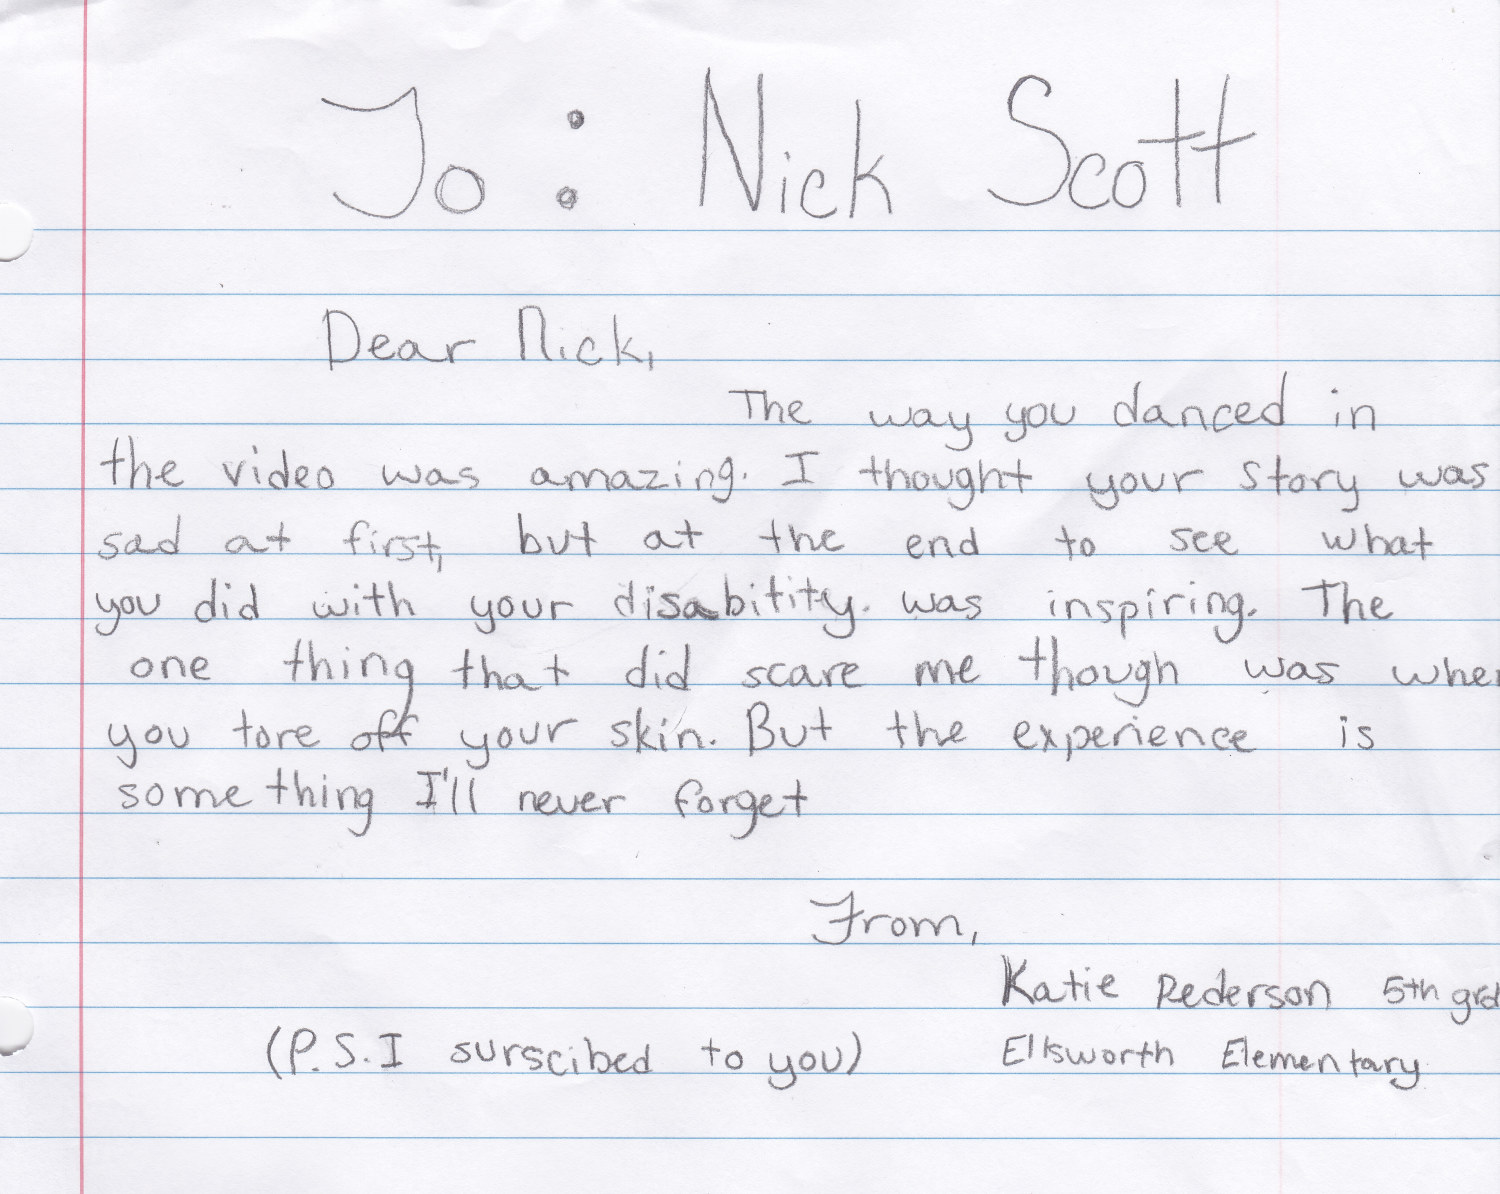 To: Nick Scott
Dear Nick,
The way you danced in
the video was amazing. I thought your story was
sad at first, but at the end to see what
you did with your disabitity. was inspiring. The
one thing that did scare me though was when
you tore off your skin. But the experience is
something I'll never forget
From,
Katie Pederson 5th grd
(P.S. I surscibed to you) Ellsworth Elementary